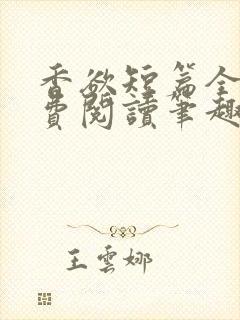 香欲短篇全
費閱讀筆趣
王雲娜